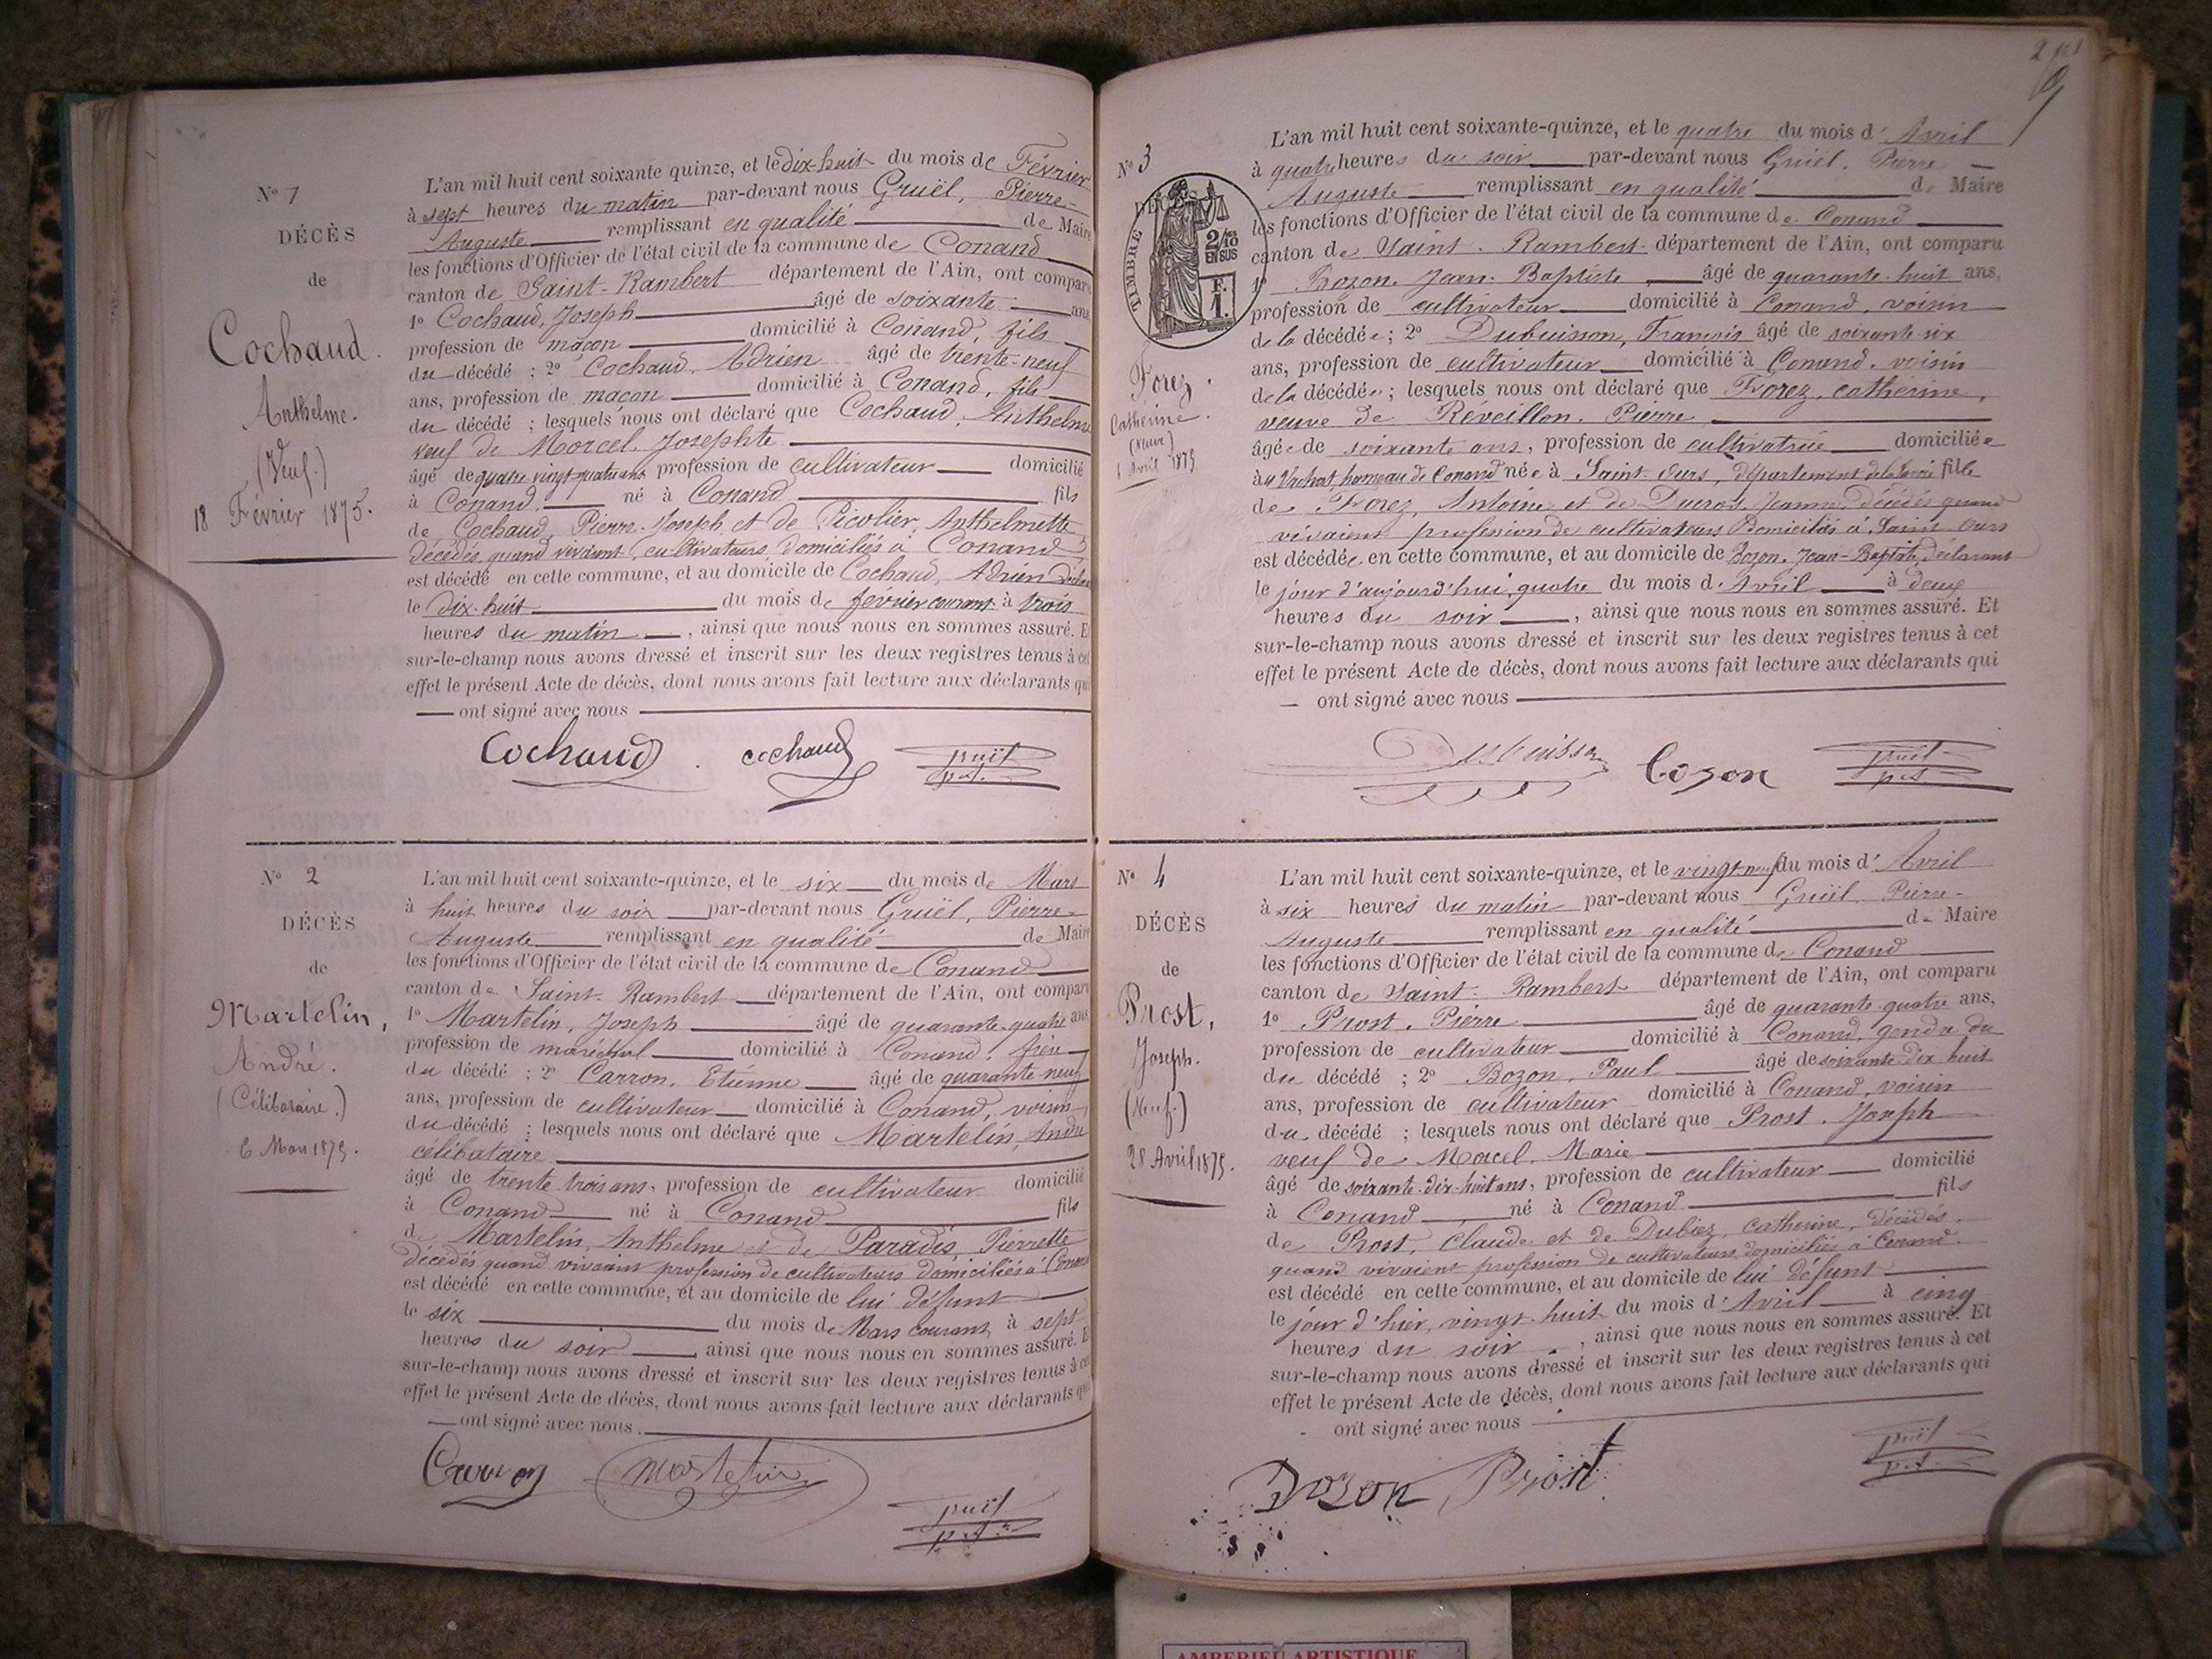 N° 1
DÉCÈS
de
Cochaud.
Anthelme.
(Veuf.)
18 Février 1875.
L'an mil huit cent soixante quinze, et le dix huit du mois de Février
à sept heures du matin par-devant nous Gruël, Pierre-
Auguste remplissant en qualité de Maire
les fonctions d'Officier de l'état civil de la commune de Conand
canton de Saint-Rambert département de l'Ain, ont comparu
1° Cochaud, Joseph âgé de soixante ans
profession de maçon domicilié à Conand, fils
du décédé ; 2° Cochaud, Adrien âgé de trente-neuf
ans, profession de maçon domicilié à Conand, fils
du décédé ; lesquels nous ont déclaré que Cochaud, Anthelme
veuf de Morcel, Josephte
âgé de quatre vingt quatre ans profession de cultivateur domicilié
à Conand, né à Conand fils
de Cochaud, Pierre-Joseph et de Picolier, Anthelmette
décédés quand vivaient cultivateurs domiciliés à Conand,
est décédé en cette commune, et au domicile de Cochaud, Adrien
le dix-huit du mois de février courant à trois
heures du matin, ainsi que nous nous en sommes assuré. Et
sur-le-champ nous avons dressé et inscrit sur les deux registres tenus à cet
effet le présent Acte de décès, dont nous avons fait lecture aux déclarants qui
ont signé avec nous
Cochaud. cochaud gruël
N° 2
DÉCÈS
de
Martelin,
André.
(Célibataire.)
6 Mars 1875.
L'an mil huit cent soixante-quinze, et le six du mois de Mars
à huit heures du soir par-devant nous Gruël, Pierre-
Auguste remplissant en qualité de Maire
les fonctions d'Officier de l'état civil de la commune de Conand
canton de Saint-Rambert département de l'Ain, ont comparu
1° Martelin, Joseph âgé de quarante-quatre ans
profession de maréchal domicilié à Conand, frère
du décédé ; 2° Carron, Etienne âgé de quarante-neuf
ans, profession de cultivateur domicilié à Conand, voisin
du décédé ; lesquels nous ont déclaré que Martelin, André
célibataire
âgé de trente trois ans, profession de cultivateur domicilié
à Conand né à Conand fils
de Martelin, Anthelme et de Paradis, Pierrette
décédés quand vivaient profession de cultivateurs domiciliés à Conand
est décédé en cette commune, et au domicile de lui défunt
le six du mois de Mars courant, à sept
heures du soir, ainsi que nous nous en sommes assuré. Et
sur-le-champ nous avons dressé et inscrit sur les deux registres tenus à cet
effet le présent Acte de décès, dont nous avons fait lecture aux déclarants qui
ont signé avec nous.
Carron Martelin gruël
N° 3
DÉC
TIMBRE
2/10
EN SUS
F.
1.
Forez.
Catherine.
(Veuve)
4 Avril 1875
L'an mil huit cent soixante-quinze, et le quatre du mois d'Avril
à quatre heures du soir par-devant nous Gruël, Pierre
Auguste remplissant en qualité de Maire
les fonctions d'Officier de l'état civil de la commune de Conand
canton de Saint-Rambert département de l'Ain, ont comparu
1° Bozon, Jean-Baptiste, âgé de quarante-huit ans,
profession de cultivateur domicilié à Conand, voisin
de la décédée ; 2° Dubuisson, François âgé de soixante-six
ans, profession de cultivateur domicilié à Conand, voisin
de la décédée ; lesquels nous ont déclaré que Forez, catherine,
veuve de Réveillon, Pierre
âgée de soixante ans, profession de cultivatrice domiciliée
hameau de Conand née à Saint-Ours, département de la Savoie fille
de Forez, Antoine et de Ducros, Jeanne, décédés quand
vivaient profession de cultivateurs domiciliés à Saint Ours
est décédée en cette commune, et au domicile de Bozon, Jean-Baptiste, déclarant
le jour d'aujourd'hui, quatre du mois d'Avril à deux
heures du soir, ainsi que nous nous en sommes assuré. Et
sur-le-champ nous avons dressé et inscrit sur les deux registres tenus à cet
effet le présent Acte de décès, dont nous avons fait lecture aux déclarants qui
ont signé avec nous
Dubuisson bozon gruël
N° 4
DÉCÈS
de
Prost,
Joseph.
(Veuf.)
28 Avril 1875.
L'an mil huit cent soixante-quinze, et le vingt-neuf du mois d'Avril
à six heures du matin par-devant nous Gruël, Pierre-
Auguste remplissant en qualité de Maire
les fonctions d'Officier de l'état civil de la commune de Conand
canton de Saint-Rambert département de l'Ain, ont comparu
1° Prost, Pierre âgé de quarante-quatre ans,
profession de cultivateur domicilié à Conand, gendre du
du décédé ; 2° Bozon, Paul âgé de soixante dix huit
ans, profession de cultivateur domicilié à Conand, voisin
du décédé ; lesquels nous ont déclaré que Prost, Joseph
veuf de Morcel, Marie
âgé de soixante-dix-huit ans, profession de cultivateur domicilié
à Conand né à Conand fils
de Prost, Claude et de Dubiez, catherine, décédés,
quand vivaient profession de cultivateurs domiciliés à Conand.
est décédé en cette commune, et au domicile de lui défunt
le jour d'hier, vingt-huit du mois d'Avril à cinq
heures du soir, ainsi que nous nous en sommes assuré. Et
sur-le-champ nous avons dressé et inscrit sur les deux registres tenus à cet
effet le présent Acte de décès, dont nous avons fait lecture aux déclarants qui
ont signé avec nous
Bozon Prost gruël
AMBERIEU ARTISTIQUE